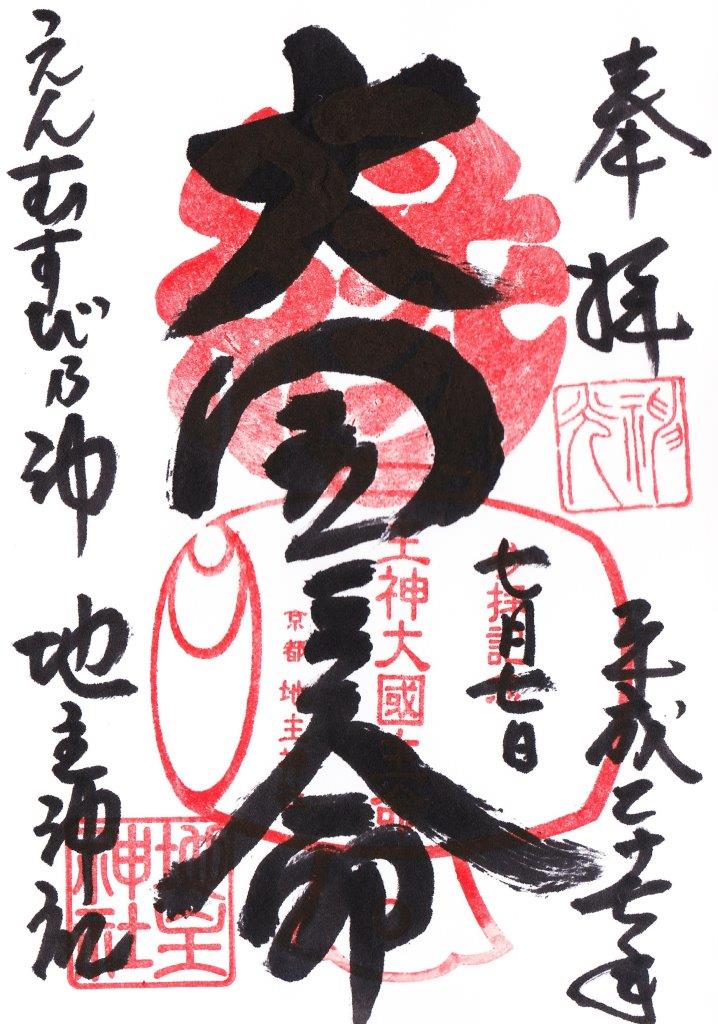 奉拝
平成二十七年
七月七日
大国主命
えんむすび乃神
地主神社
参拝記念
主神大國主命
京都 地主神社
地主神社